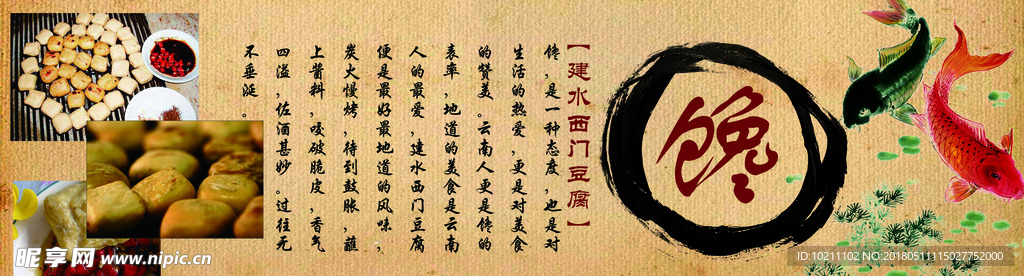 馋
【建水西门豆腐】
馋，是一种态度，也是对
生活的热爱，更是对美食
的赞美。云南人更是馋的
表率，地道的美食是云南
人的最爱，建水西门豆腐
便是最好最地道的风味，
炭火慢烤，待到鼓胀，蘸
上酱料，咬破脆皮，香气
四溢，佐酒甚妙。过往无
不垂涎。
www.nipic.com
昵享网 www.nipic.cn
ID:10211102 NO:20180511115027752000